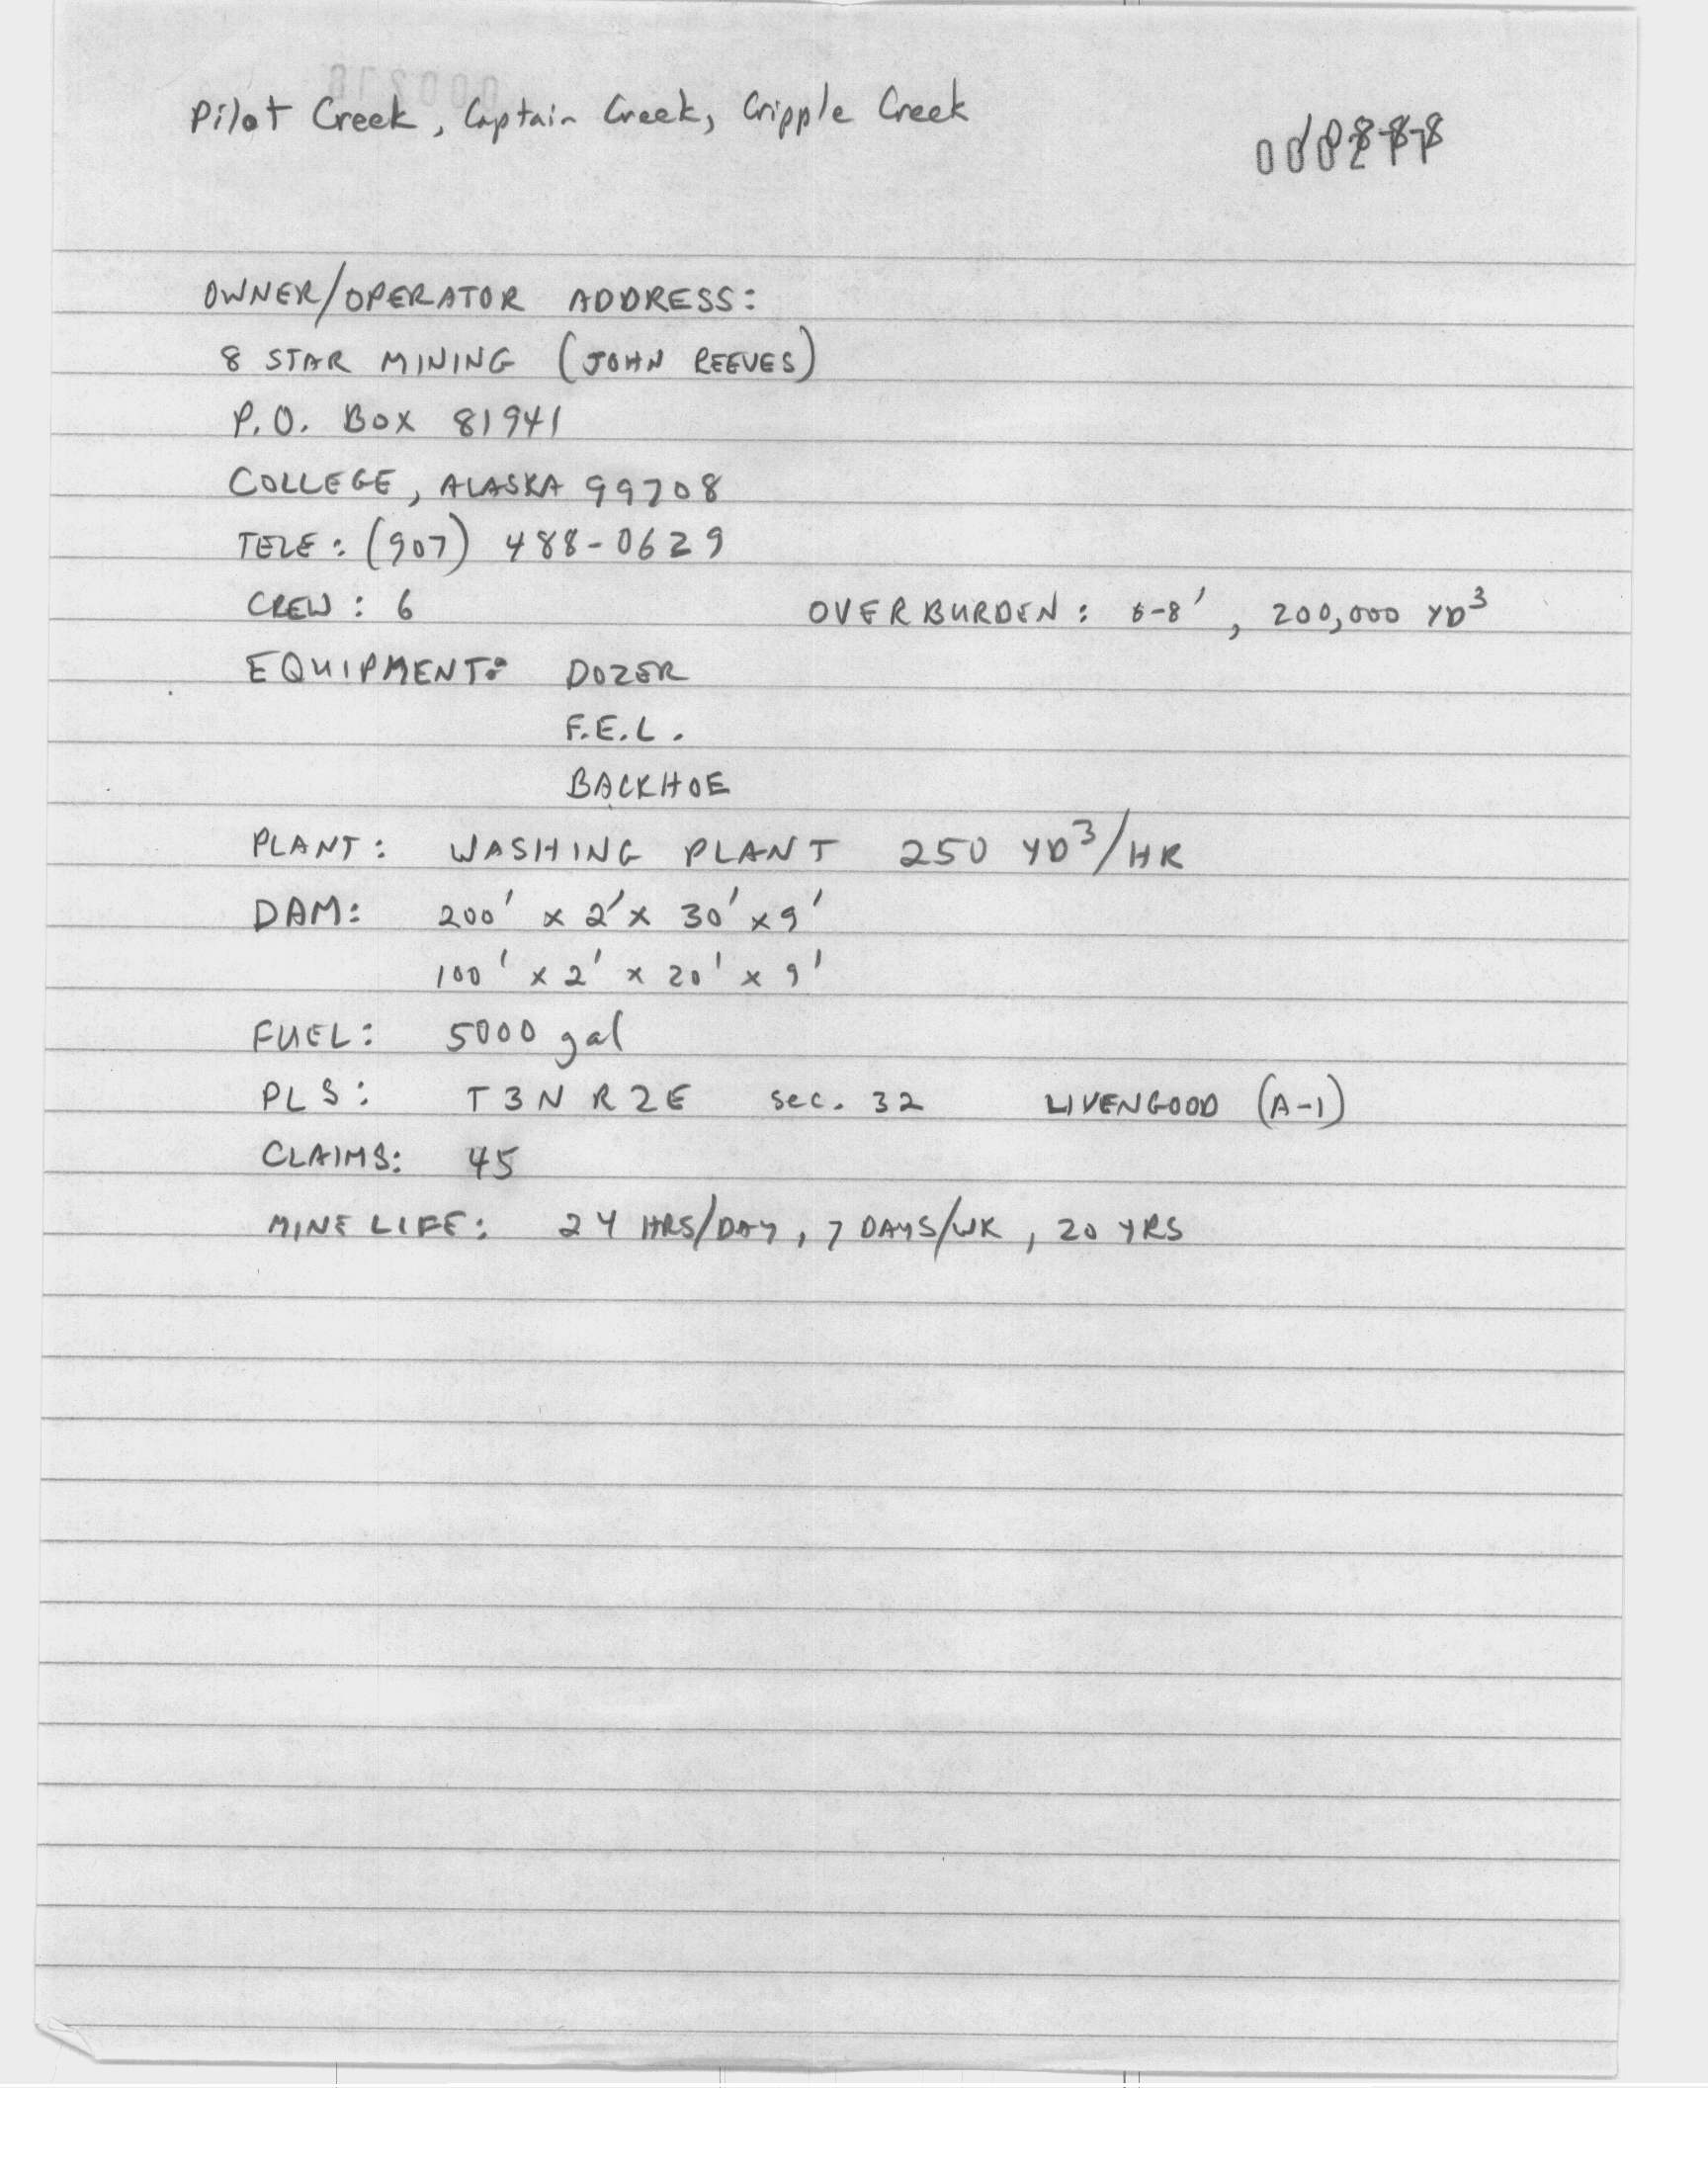 Pilot Creek, Captain Creek, Cripple Creek
OWNER/OPERATOR ADDRESS:
8 STAR MINING (JOHN REEVES)
P.O. BOX 81941
COLLEGE, ALASKA 99708
TELE: (907) 488-0629
CREW: 6 OVERBURDEN: 6-8', 200,000 YD³
EQUIPMENT: DOZER
F.E.L.
BACKHOE
PLANT: WASHING PLANT 250 YD³/HR
DAM: 200' x 2' x 30' x 9'
100' x 2' x 20' x 9'
FUEL: 5000 gal
PLS: T3N R2E sec. 32 LIVENGOOD (A-1)
CLAIMS: 45
MINE LIFE: 24 HRS/DAY, 7 DAYS/WK, 20 YRS